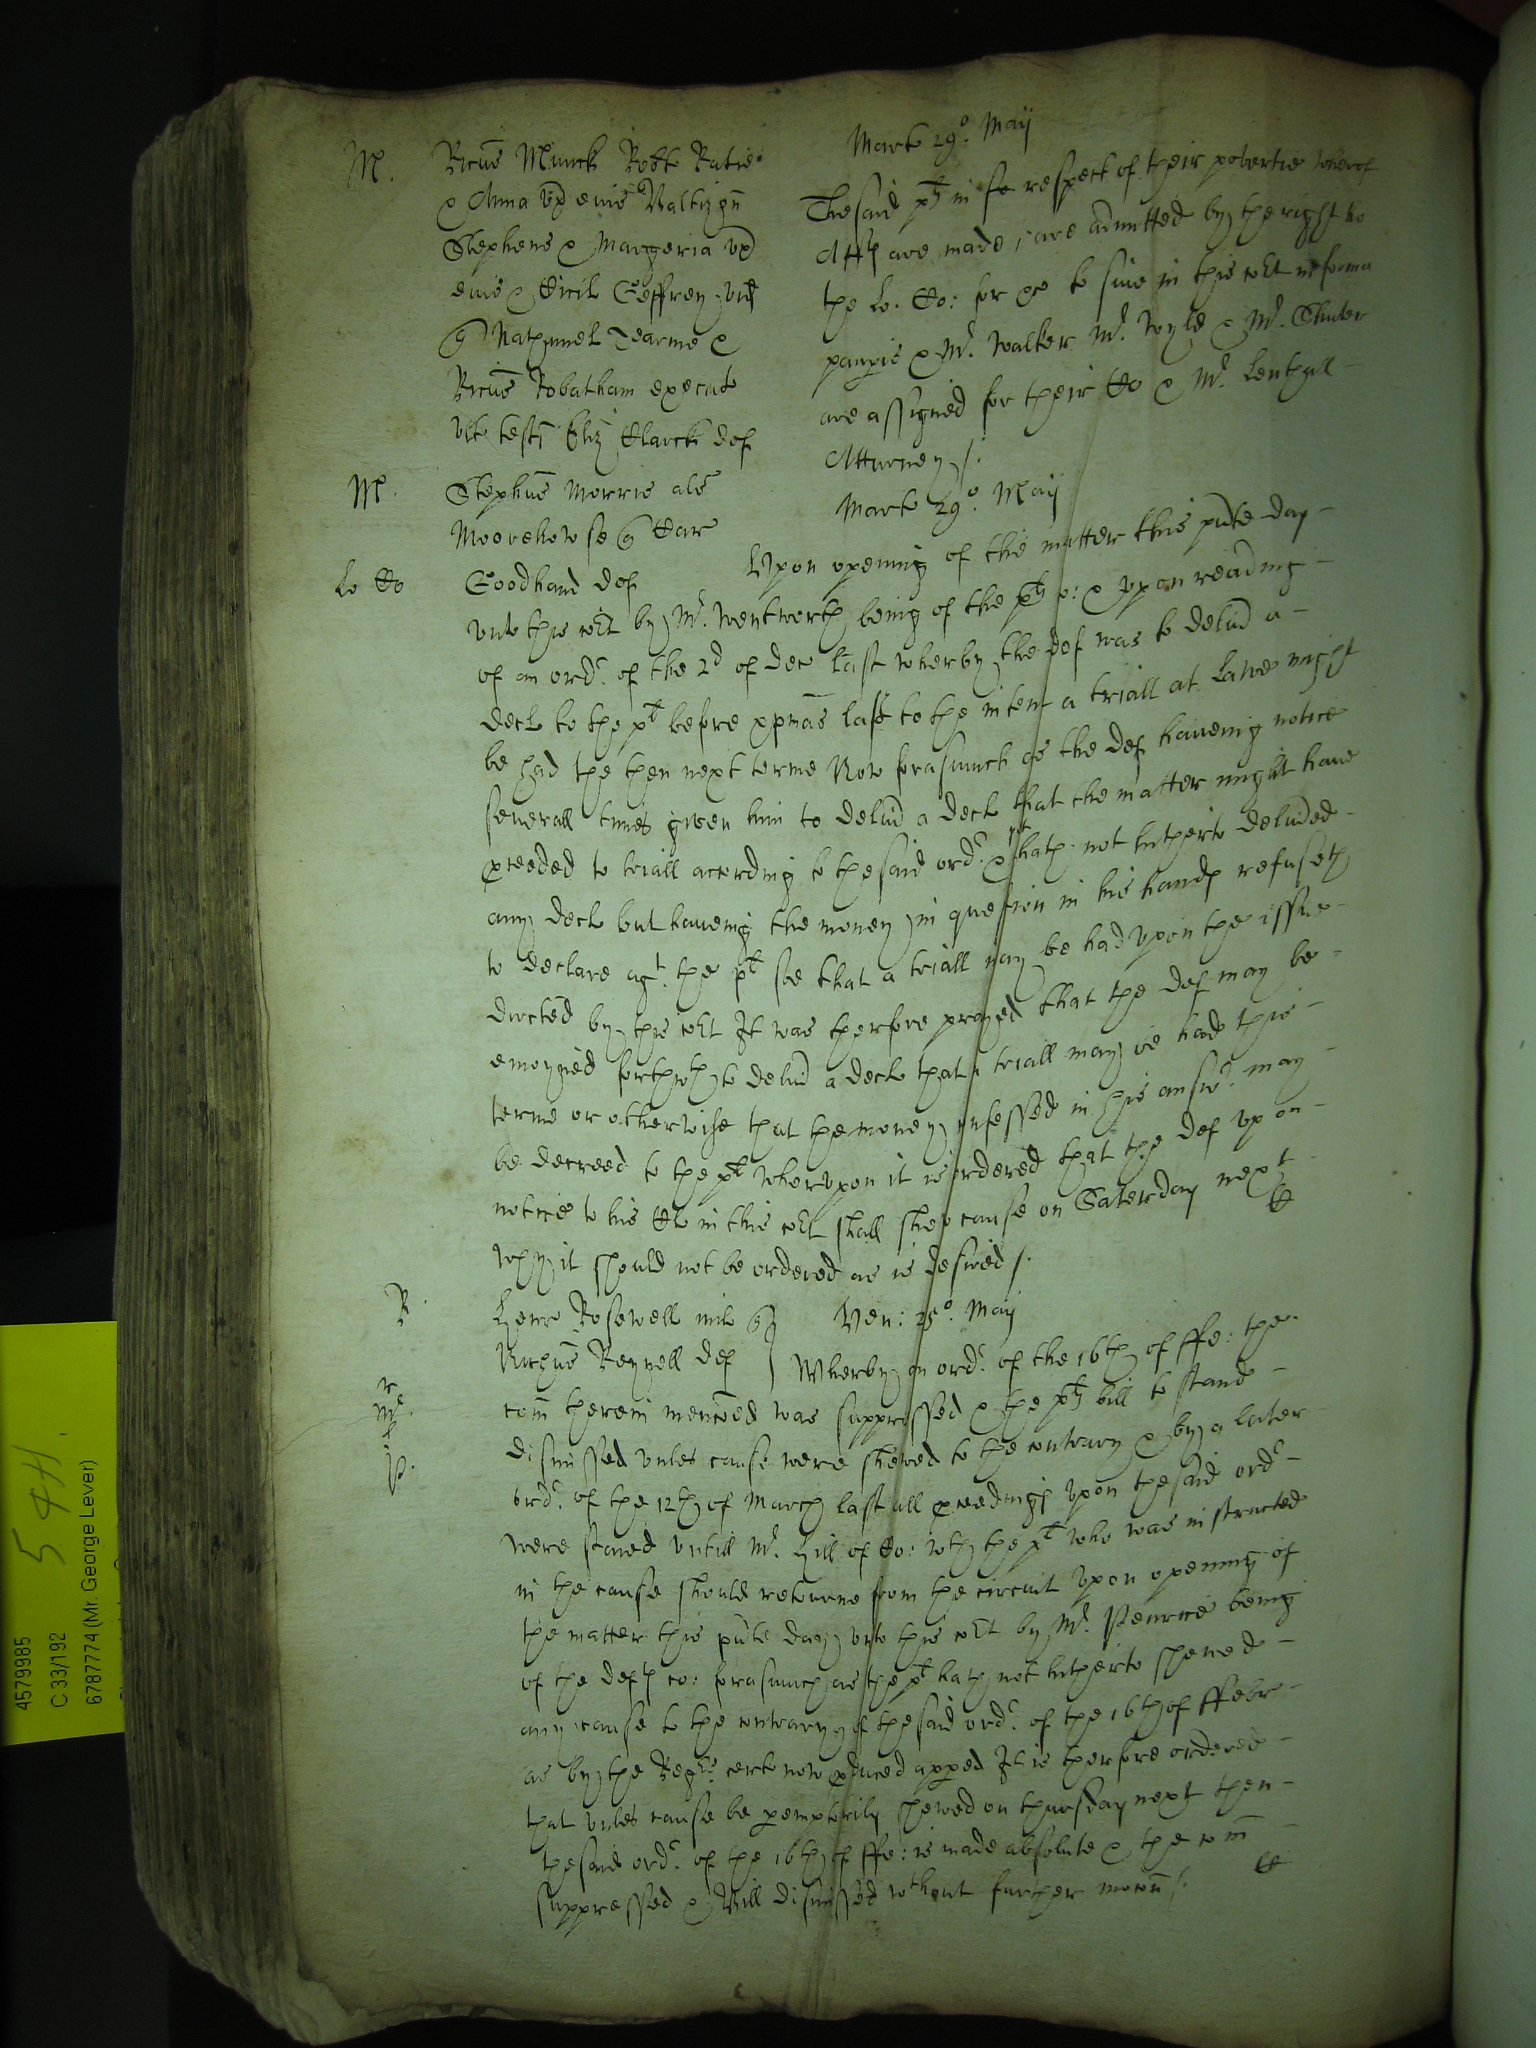 M.
Ricus Munck Robte Ratie
& Anna vx eius Walthgn
Stephens & Margeria vx
eius & Cicil Geffrey vid
Nathaniel Tearme &
Ricus Robatham execut
vlt testi Eliz Clarck def
Marte 29o. Maij
The said plts in respect of their povertie wherof
Affts are made, are admitted by the right ho
the lo. Co: for to sue in this Cort in forma
paupis & Mr. Walker Mr. Wyld & Mr. Shuter
are assigned for their Co & Mr. Lenthall
Atturney /.
M.
Stephus Morris als
Moorehowse Car
Goodhand def
lo Co
Marte 29o. Maij
Upon opening of the matter this pnte day
vnto this Cort by Mr. Wentworth being of the plts Co: & vpon reading
of an ordr. of the 2d of dec last wherby the def was to delivd a
decl to the plt before xpmas last to the intent a triall at lawe might
be had the then next terme Now forasmuch as the def haveing notice
severall times given him to delivd a decl that the matter might have
pceeded to triall according to the said ordr. & yet hath not hitherto delived
any decl but haveing the money in question in his hands refuseth
to declare agt. the plt soe that a triall may be had vpon the issue
directed by this Cort It was therfore prayed that the def may be
enioyned forthwth to delivd a decl that a triall may be had this
terme or otherwise that the money confessed in his answr. may
be decreed to the plt wherupon it is ordered that the def vpon
notice to his Cl in this Cort shall shew cause on Saterday next
why it should not be ordered as is desired /.
R.
Henr Rosewell mil
Richus Reynell def
Ven: 25o. Maij
Wherby an ordr. of the 16th of ffe: the
com therein mencoed was suppressed & the plts bill to stand
dismissed vnles cause were shewed to the contrary & by a later
ordr. of the 12th of March last all pceedings vpon the said ordr
were staied vntill Mr. Hill of Co: wth the plt who was instructed
in the cause should retourne from the circuit vpon opening of
the matter this pnte day vnto this Cort by Mr. Penrice being
of the defts co: forasmuch as the plt hath not hitherto shewed
any cause to the contrary of the said ordr. of the 16th of ffebr
as by the Regrs. cert now pduced apped It is therfore ordered
that vnles cause be pemptorily shewed on thursday next then
the said ordr. of the 16th of ffe: is made absolute & the com
suppressed & Bill dismissed wthout further mocon /.
4579985
C 33/192
6787774 (Mr. George Lever)